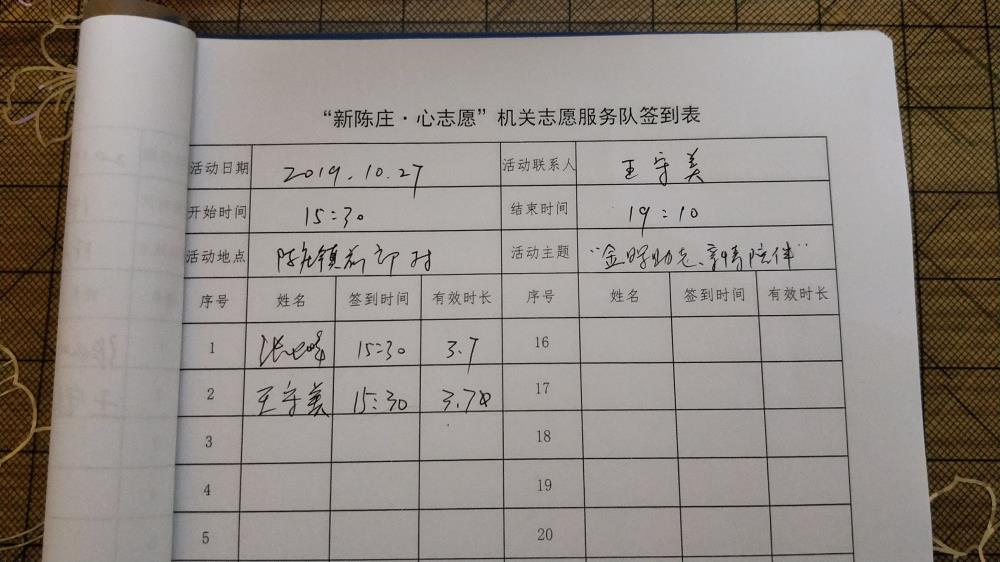 “新陈庄·心志愿”机关志愿服务队签到表
活动日期 2019.10.27 活动联系人 王守美
开始时间 15:30 结束时间 19:10
活动地点 陈庄镇 村 活动主题 “金晖助老、亲情陪伴”
序号 姓名 签到时间 有效时长 序号 姓名 签到时间 有效时长
1 15:30 3.7 16
2 王守美 15:30 3.7 17
3 18
4 19
5 20